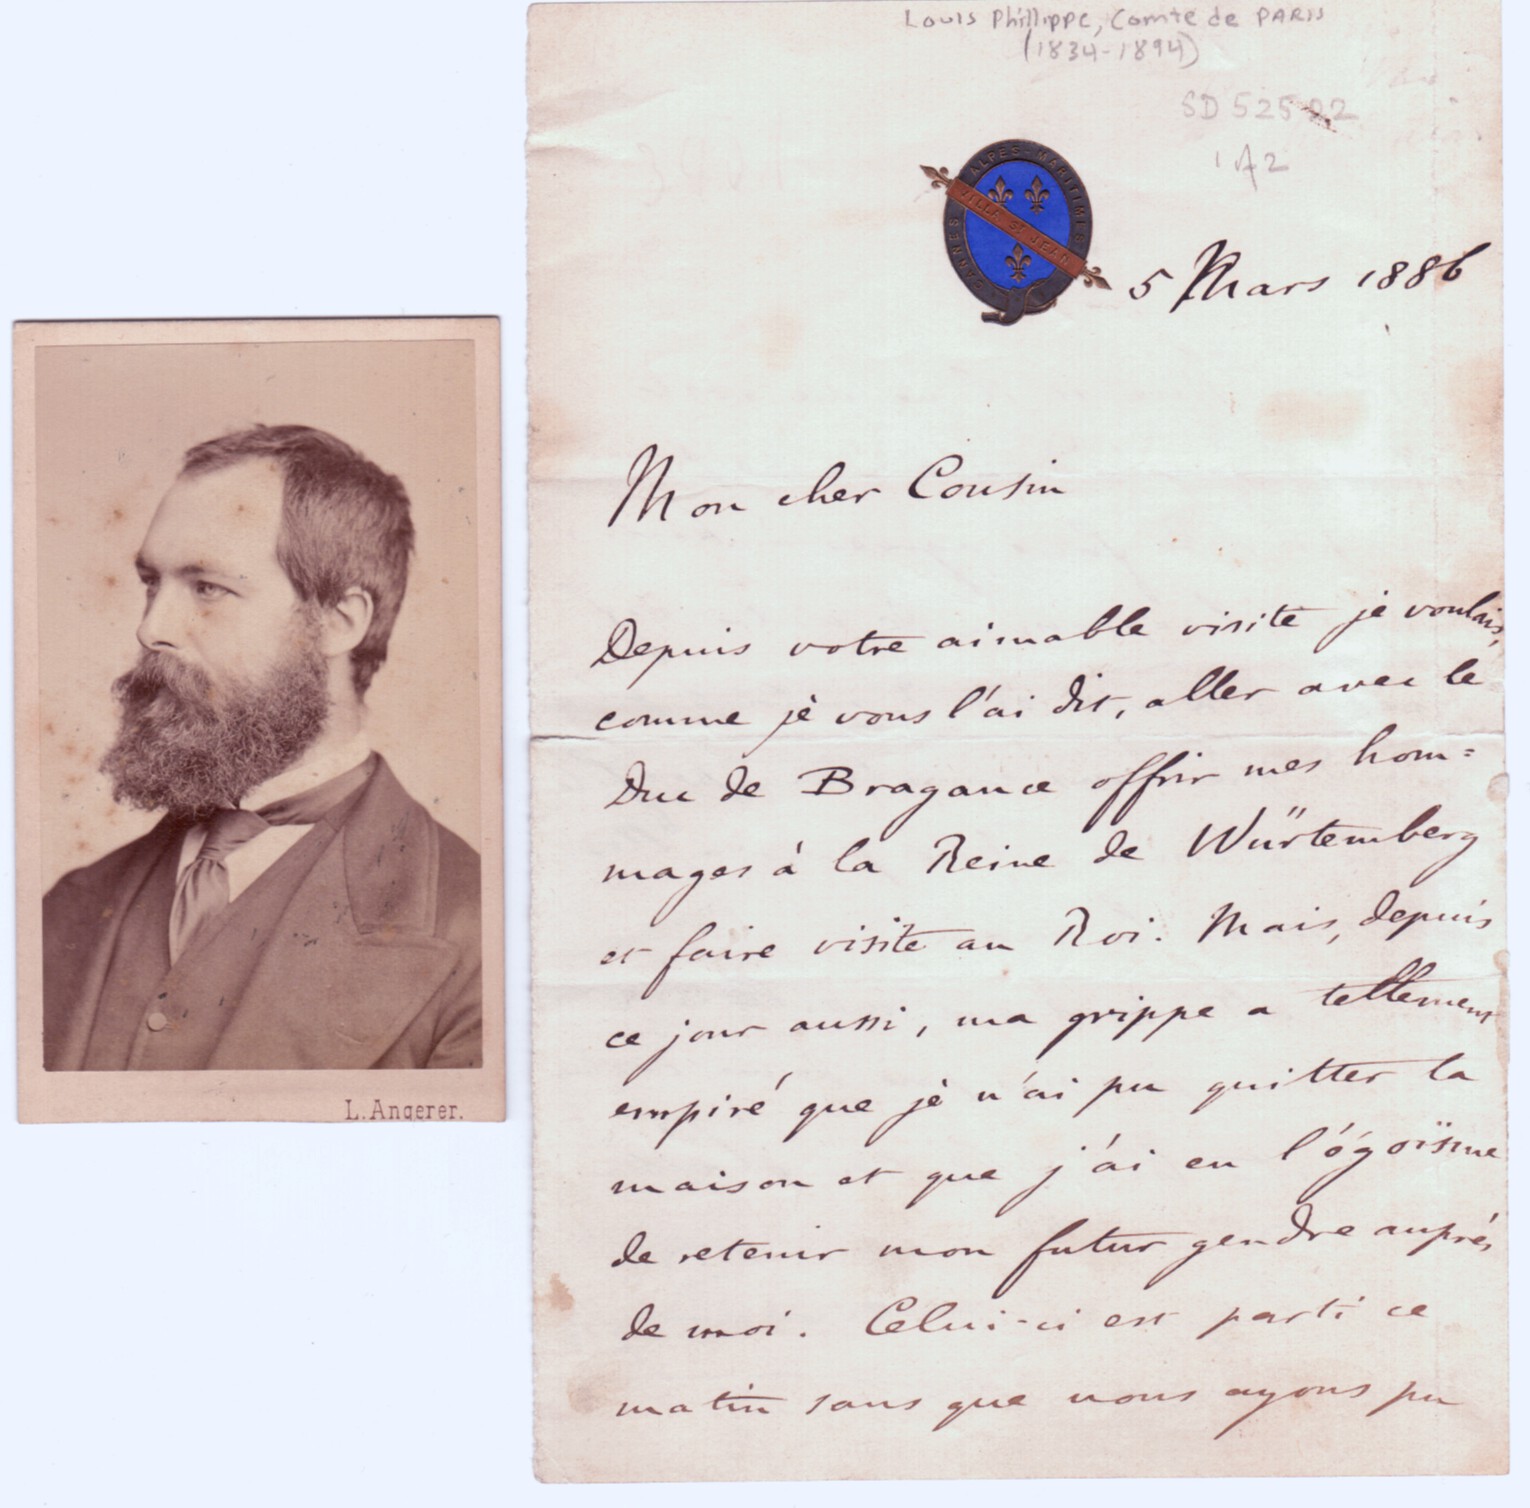 Louis Phillippe, Comte de PARIS
(1834-1894)
SD 52502
A2
CANNES ALPES-MARITIMES
VILLA ST JEAN
5 Mars 1886
Mon cher Cousin
Depuis votre aimable visite je voulais,
comme je vous l'ai dit, aller avec le
Duc de Bragance offrir mes hom=
mages à la Reine de Würtemberg
et faire visite au Roi. Mais, depuis
ce jour aussi, ma grippe a tellement
empiré que je n'ai pu quitter la
maison et que j'ai eu l'égoïsme
de retenir mon futur gendre auprès
de moi. Celui-ci est parti ce
matin sans que nous ayons pu
L. Angerer.